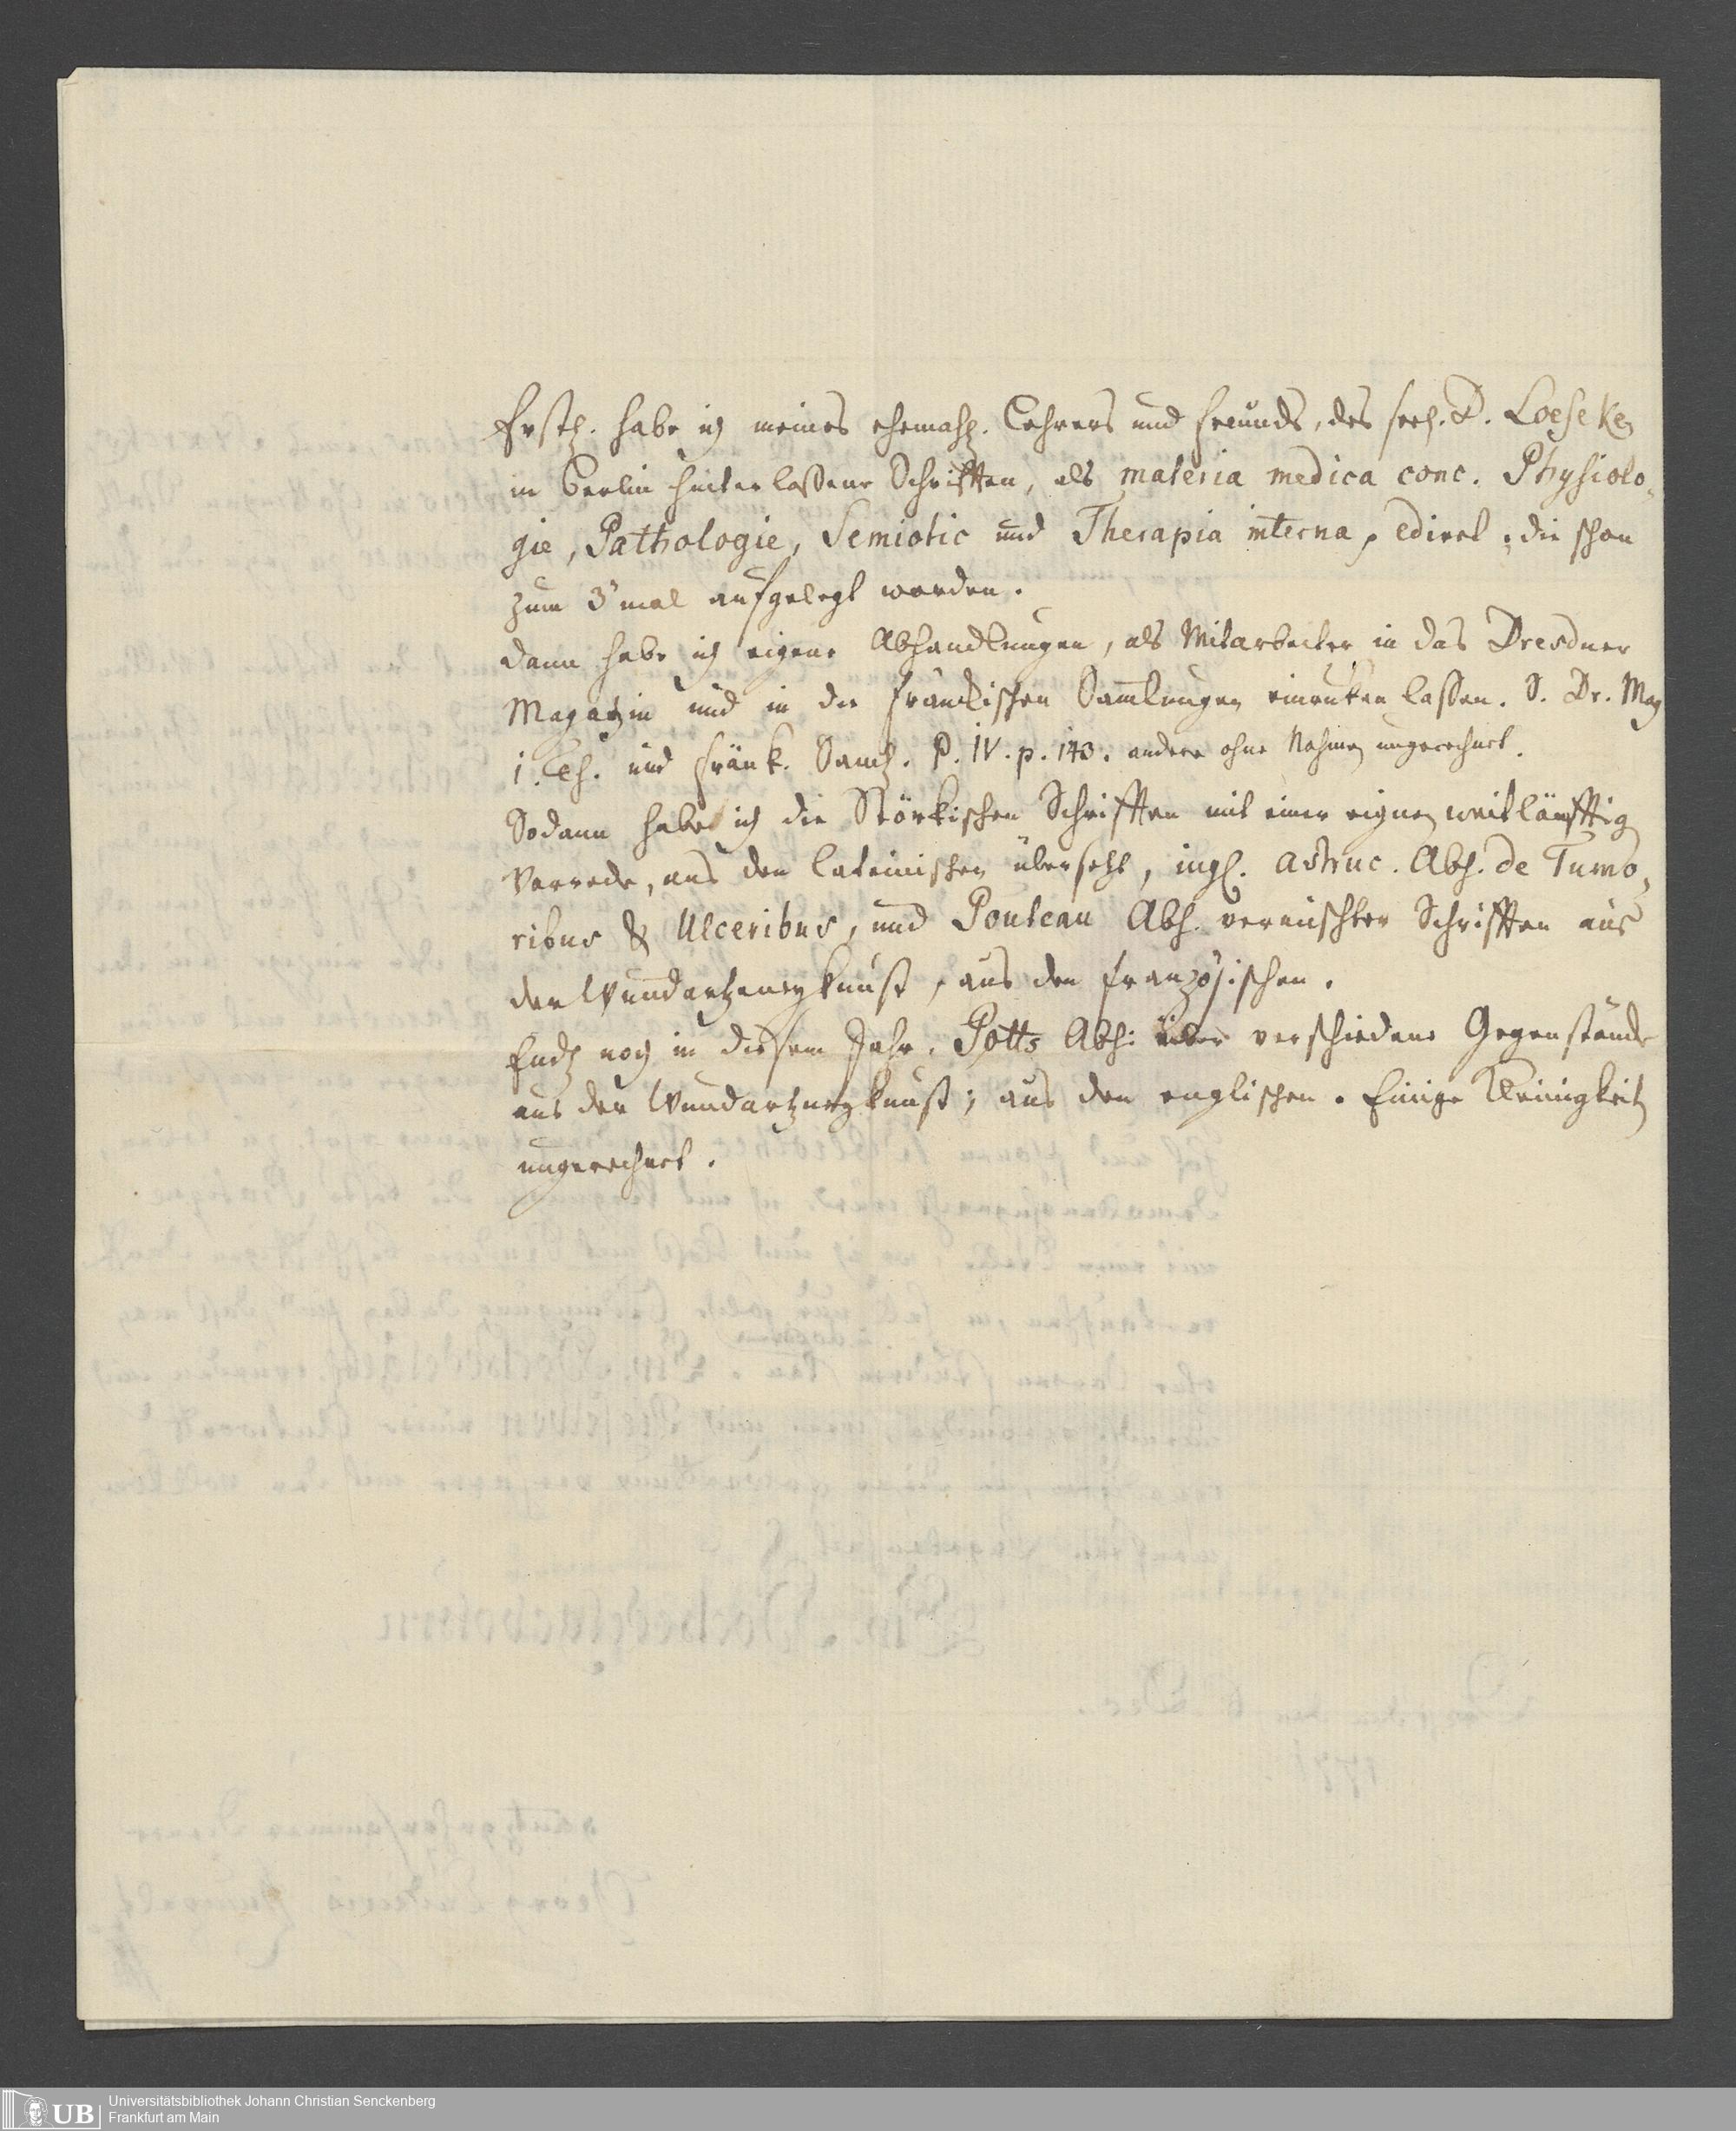 Erstl. habe ich meines ehemahl. Lehrers und Freunds, des seel. D. Loeseken
in Berlin hinterlaßene Schrifften, als materia medica conc. Physiolo-
gie, Pathologie, Semiotic und Therapia interna, edirt, die schon
zum 3mal aufgelegt worden.
Dann habe ich eigene Abhandlungen, als Mitarbeiter in das Dresdner
Magazin und in die Fränkischen Samlungen einruken laßen. S. Dr. Mag
1. Th. und Fränk. Saml. P. IV. p. 143. andere ohne Nahmen ungerechnet.
Sodann habe ich die Störkischen Schrifften mit einer eignen weitläufftigen
Vorrede, aus den lateinischen übersetzt, ingl. Astruc. Abh. de Tumo-
ribus & Ulceribus, und Pouteau Abh. vermischter Schrifften aus
der Wundartzeneykunst, aus den französischen.
Endl noch in diesem Jahr, Potts Abh: über verschiedene Gegenstände
aus der Wundartzneykunst; aus den englischen. Einige Kleinigkeiten
ungerechnet.
Universitätsbibliothek Johann Christian Senckenberg
UB Frankfurt am Main